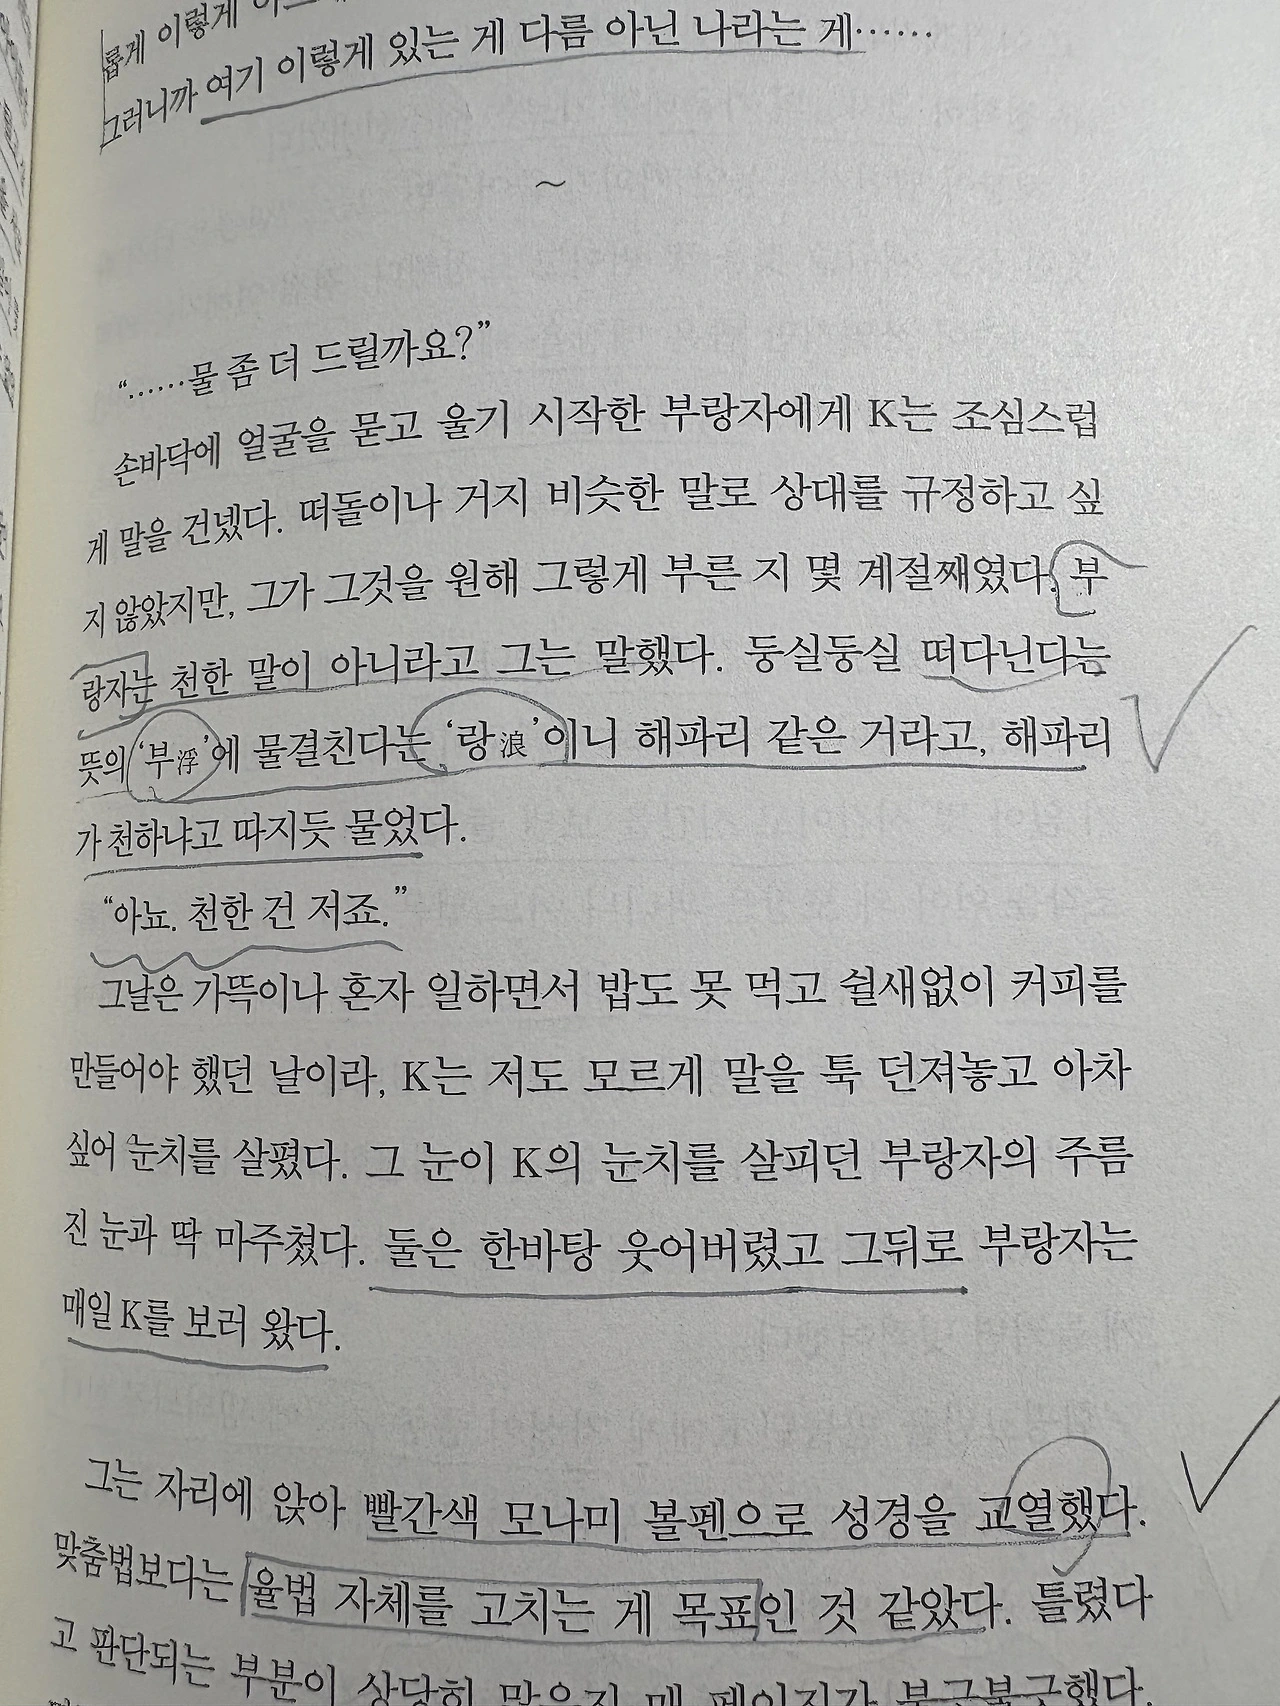 롭게 이렇게
그러니까 여기 이렇게 있는 게 다름 아닌 나라는 게……
~
“……물 좀 더 드릴까요?”
손바닥에 얼굴을 묻고 울기 시작한 부랑자에게 K는 조심스럽
게 말을 건넸다. 떠돌이나 거지 비슷한 말로 상대를 규정하고 싶
지 않았지만, 그가 그것을 원해 그렇게 부른 지 몇 계절째였다. 부
랑자는 천한 말이 아니라고 그는 말했다. 둥실둥실 떠다닌다는
뜻의 ‘부浮’에 물결친다는 ‘랑浪’이니 해파리 같은 거라고, 해파리
가 천하냐고 따지듯 물었다.
“아뇨. 천한 건 저죠.”
그날은 가뜩이나 혼자 일하면서 밥도 못 먹고 쉴새없이 커피를
만들어야 했던 날이라, K는 저도 모르게 말을 툭 던져놓고 아차
싶어 눈치를 살폈다. 그 눈이 K의 눈치를 살피던 부랑자의 주름
진 눈과 딱 마주쳤다. 둘은 한바탕 웃어버렸고 그뒤로 부랑자는
매일 K를 보러 왔다.
그는 자리에 앉아 빨간색 모나미 볼펜으로 성경을 교열했다.
맞춤법보다는 율법 자체를 고치는 게 목표인 것 같았다. 틀렸다
고 판단되는 부분이 상당히 많은지 매 페이지가 불긋불긋했다.